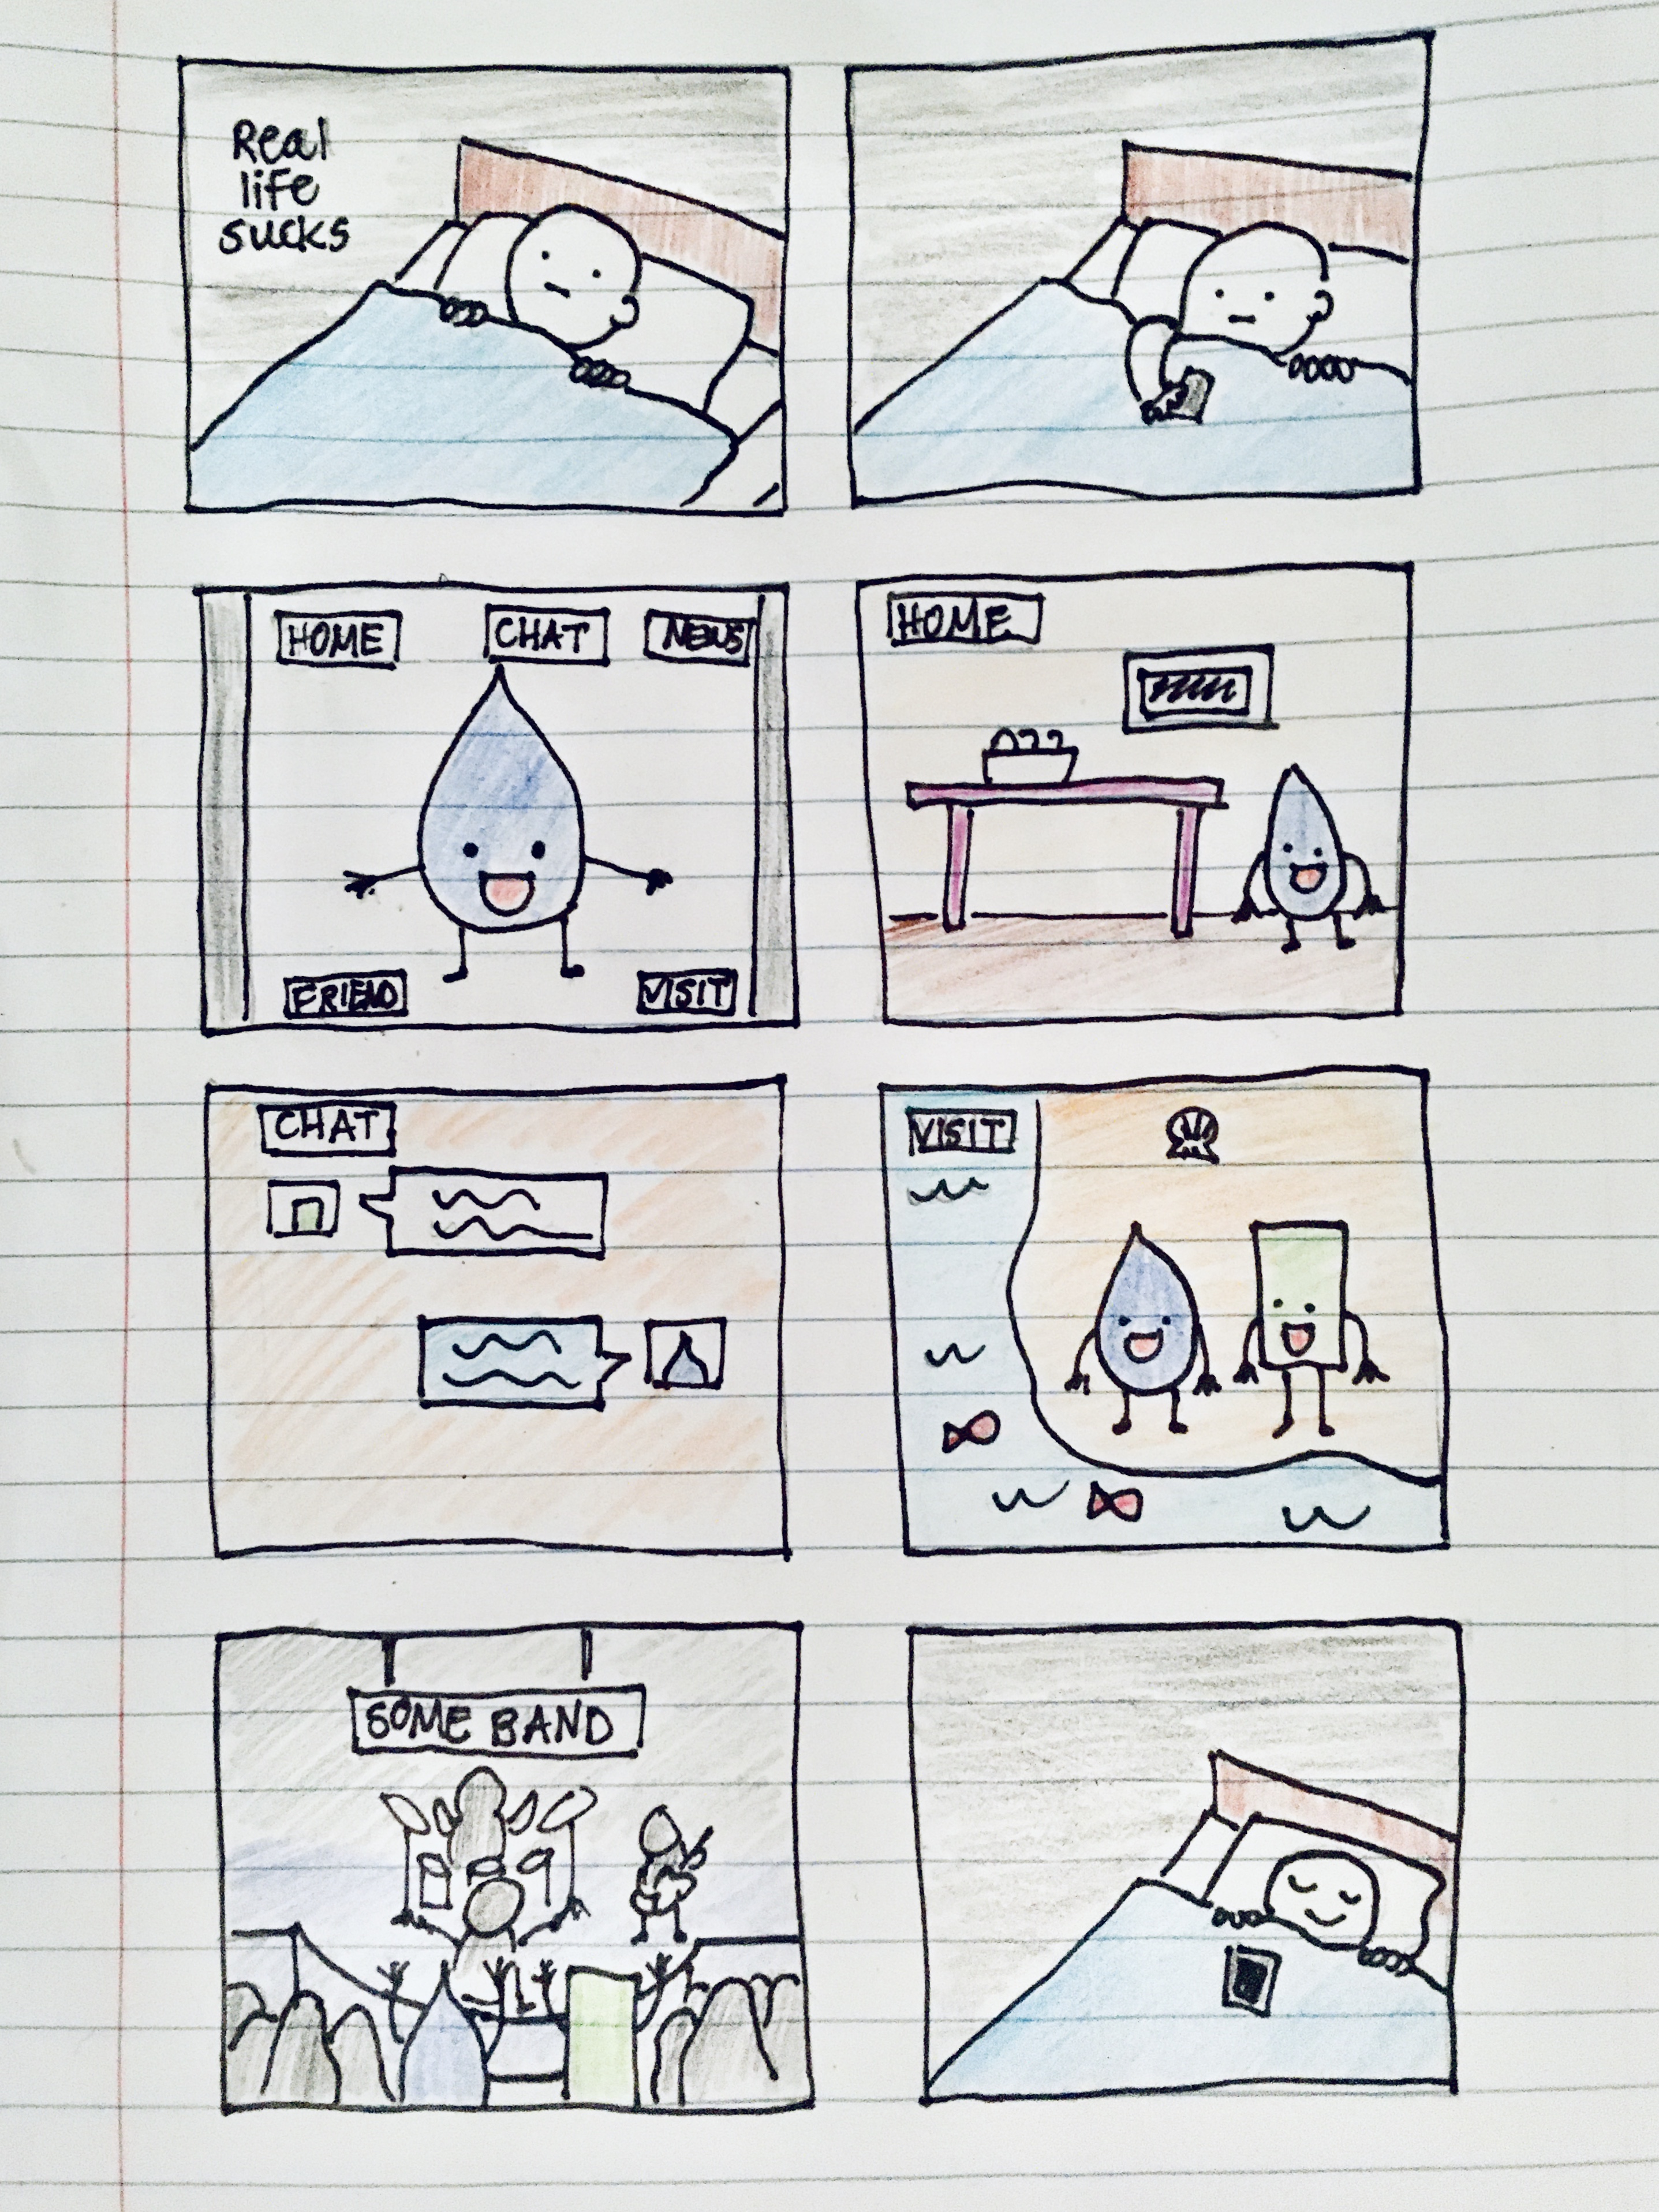 Real
life
sucks
HOME
CHAT
NEWS
FRIEND
VISIT
HOME
CHAT
VISIT
SOME BAND